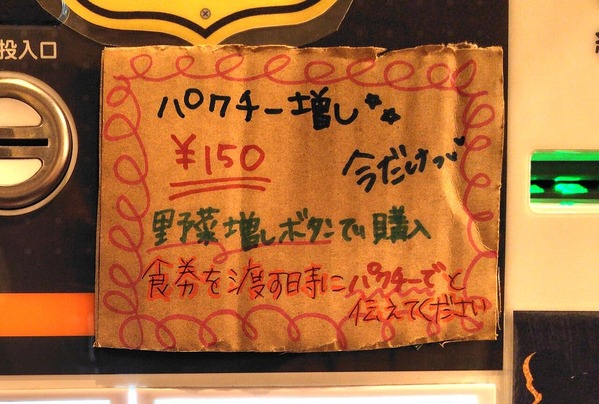 投入口
パクチー増し☆☆
¥150
今だけっ♡
野菜増しボタンで購入
食券を渡す時にパクチーでと
伝えてください